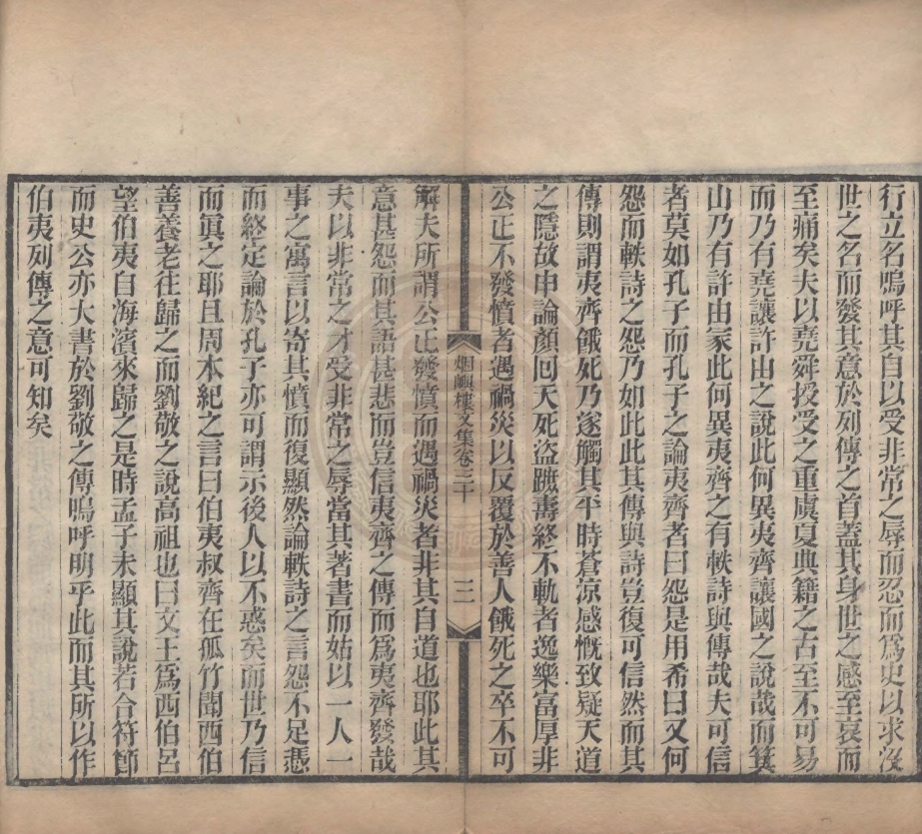 行立名嗚呼其自以受非常之辱而忍而爲史以求沒
世之名而發其意於列傳之首蓋其身世之感至哀而
至痛矣夫以堯舜授受之重虞夏典籍之古至不可易
而乃有堯讓許由之說此何異夷齊讓國之說哉而箕
山乃有許由冢此何異夷齊之有軼詩與傳哉夫可信
者莫如孔子而孔子之論夷齊者曰怨是用希曰又何
怨而軼詩之怨乃如此此其傳與詩豈復可信然而其
傳則謂夷齊餓死乃遂觸其平時蒼涼感慨致疑天道
之隱故申論顏回夭死盜蹠壽終不軌者逸樂富厚非
公正不發憤者遇禍災以反覆於善人餓死之卒不可
烟嶼樓文集卷二十 三
解夫所謂公正發憤而遇禍災者非其自道也耶此其
意甚怨而其語甚悲而豈信夷齊之傳而爲夷齊發哉
夫以非常之才受非常之辱當其著書而姑以一人一
事之寓言以寄其憤而復顯然論軼詩之言怨不足憑
而終定論於孔子亦可謂示後人以不惑矣而世乃信
而眞之耶且周本紀之言曰伯夷叔齊在孤竹聞西伯
善養老往歸之而劉敬之說高祖也曰文王爲西伯呂
望伯夷自海濱來歸之是時孟子未顯其說若合符節
而史公亦大書於劉敬之傳嗚呼明乎此而其所以作
伯夷列傳之意可知矣